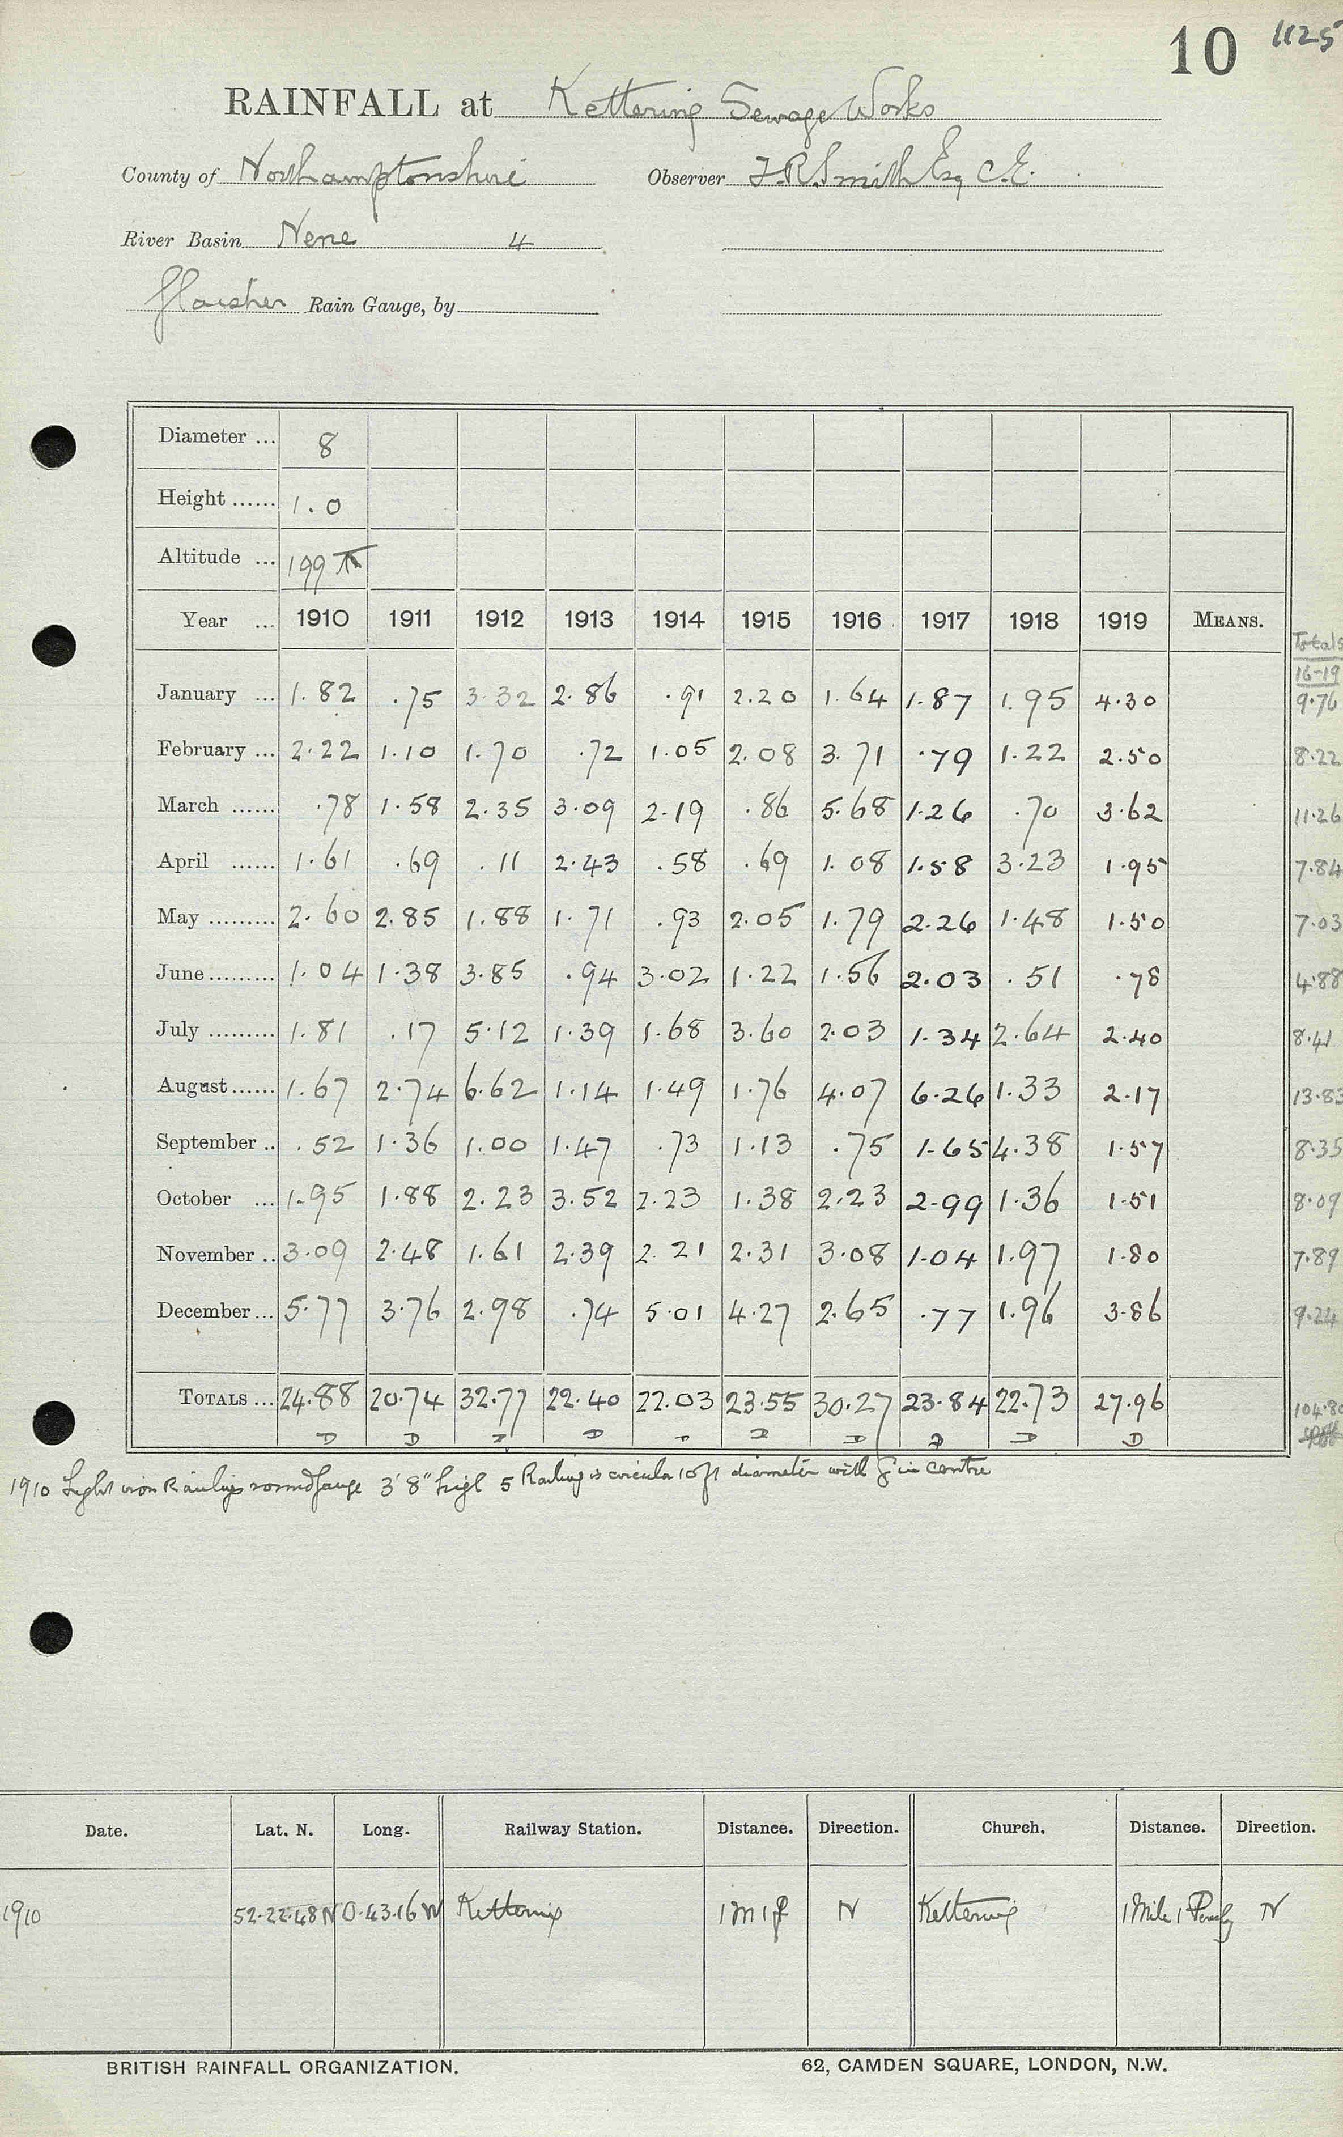 10 1125
RAINFALL at Kettering Sewage Works
County of Northamptonshire Observer T.R.Smith Esq C.E.
River Basin Nene 4
Glaisher Rain Gauge, by
Diameter ... 8
Height ...... 1.0
Altitude ... 199
Year ... 1910 1911 1912 1913 1914 1915 1916 1917 1918 1919 MEANS. Totals
16-19
January ... 1.82 .75 3.32 2.86 .91 2.20 1.64 1.87 1.95 4.30 9.76
February ... 2.22 1.10 1.70 .72 1.05 2.08 3.71 .79 1.22 2.50 8.22
March ...... .78 1.58 2.35 3.09 2.19 .86 5.68 1.26 .70 3.62 11.26
April ...... 1.61 .69 .11 2.43 .58 .69 1.08 1.58 3.23 1.95 7.84
May ......... 2.60 2.85 1.88 1.71 .93 2.05 1.79 2.26 1.48 1.50 7.03
June ......... 1.04 1.38 3.85 .94 3.02 1.22 1.56 2.03 .51 .78 4.88
July ......... 1.81 .17 5.12 1.39 1.68 3.60 2.03 1.34 2.64 2.40 8.41
August ...... 1.67 2.74 6.62 1.14 1.49 1.76 4.07 6.26 1.33 2.17 13.83
September .. .52 1.36 1.00 1.47 .73 1.13 .75 1.65 4.38 1.57 8.35
October ... 1.95 1.88 2.23 3.52 2.23 1.38 2.23 2.99 1.36 1.51 8.09
November .. 3.09 2.48 1.61 2.39 2.21 2.31 3.08 1.04 1.97 1.80 7.89
December ... 5.77 3.76 2.98 .74 5.01 4.27 2.65 .77 1.96 3.86 9.24
TOTALS ... 24.88 20.74 32.77 22.40 22.03 23.55 30.27 23.84 22.73 27.96 104.80
D D D D D D D D D D
1910 Light iron Railings round gauge 3'8" high 5 Railing is circular 10 ft diameter with g in centre
Date. Lat. N. Long. Railway Station. Distance. Direction. Church. Distance. Direction.
1910 52.22.48N 0.43.16W Kettering 1m1f N Kettering 1 Mile 1 N
BRITISH RAINFALL ORGANIZATION. 62, CAMDEN SQUARE, LONDON, N.W.